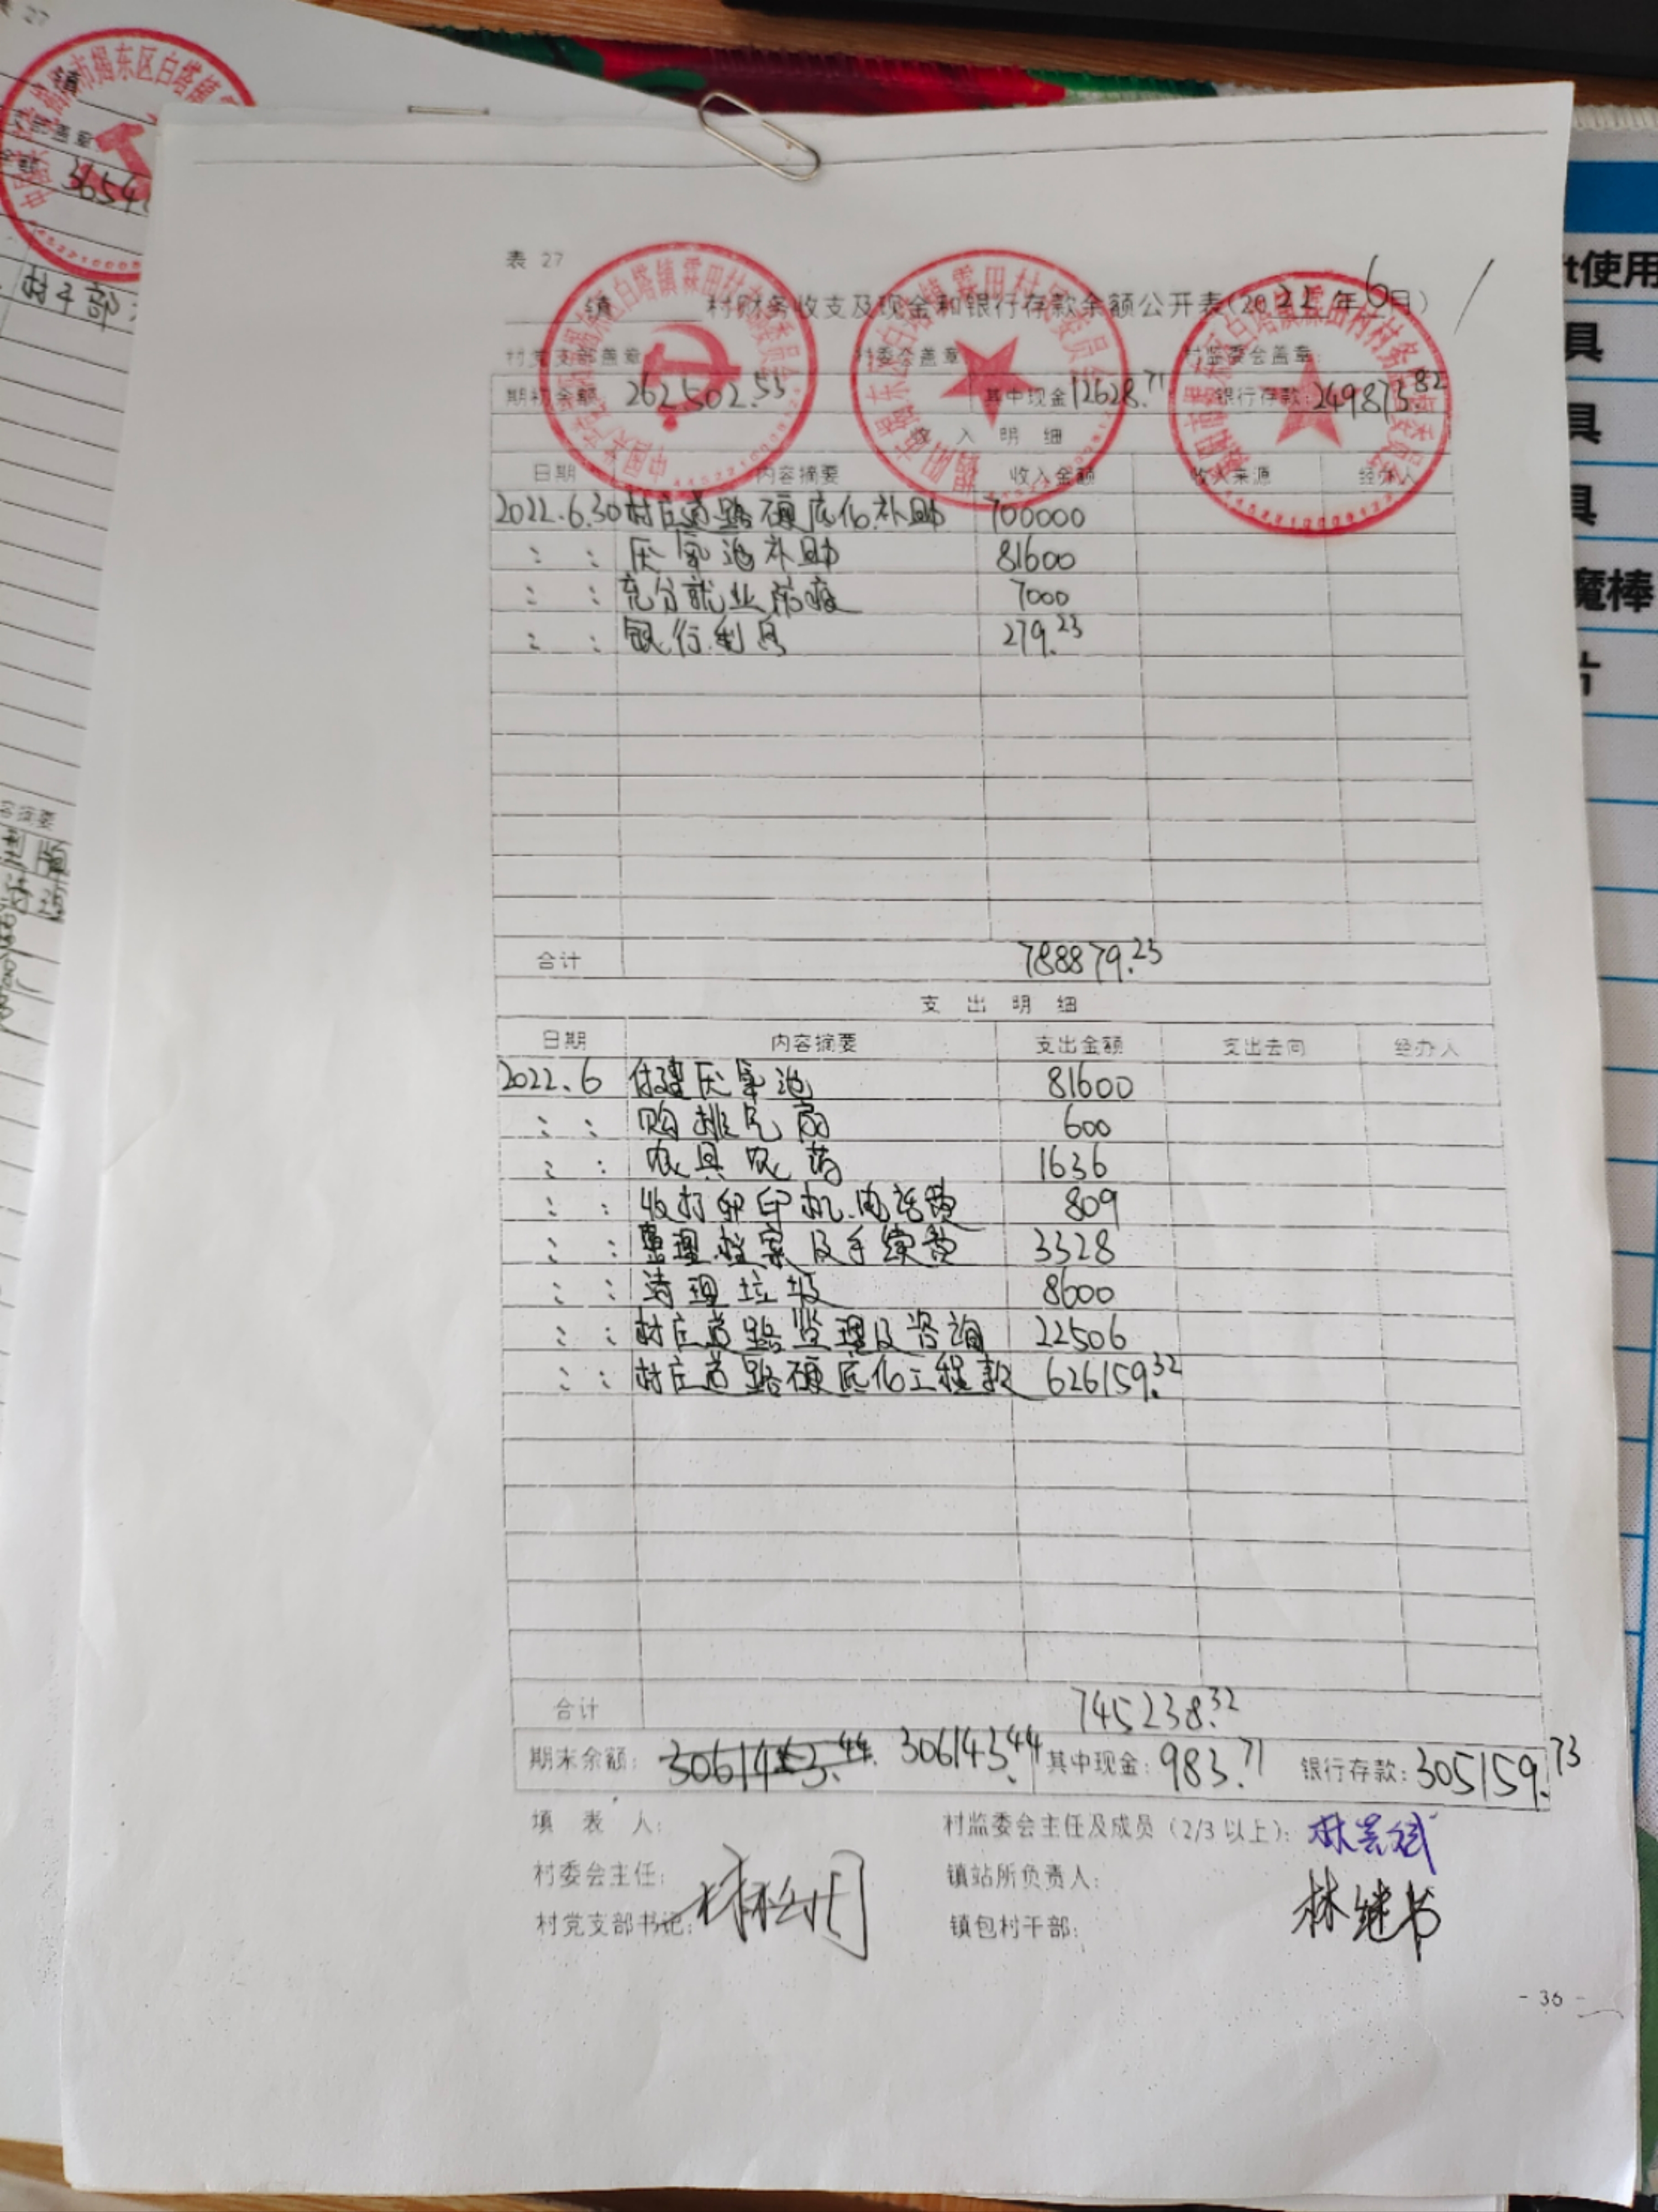 表 27
镇 村财务收支及现金和银行存款余额公开表(2022年6月)
村党支部盖章 村委会盖章 村监委会盖章:
期初余额 262502.53 其中现金12628.71 银行存款:249873.82
收 入 明 细
日期 内容摘要 收入金额 收入来源 经办人
2022.6.30 村庄道路硬底化补助 700000
: : 厌氧池补助 81600
: : 充分就业防疫 7000
: : 银行利息 279.23
合计 788879.23
支 出 明 细
日期 内容摘要 支出金额 支出去向 经办人
2022.6 付建厌氧池 81600
: : 购排气扇 600
: : 农具农药 1636
: : 收打卯印机.电话费 809
: : 整理档案及手续费 3328
: : 清理垃圾 8600
: : 村庄道路监理及咨询 22506
: : 村庄道路硬底化工程款 626159.32
合计 745238.32
期末余额: 306143.44 其中现金:983.71 银行存款:305159.73
填 表 人: 村监委会主任及成员(2/3以上):
村委会主任: 镇站所负责人:
村党支部书记: 镇包村干部: 林继书
- 36 -
表 27
市揭东区白塔镇
盖章
3654
村干部
内容摘要
t使用
具
具
具
魔棒
片